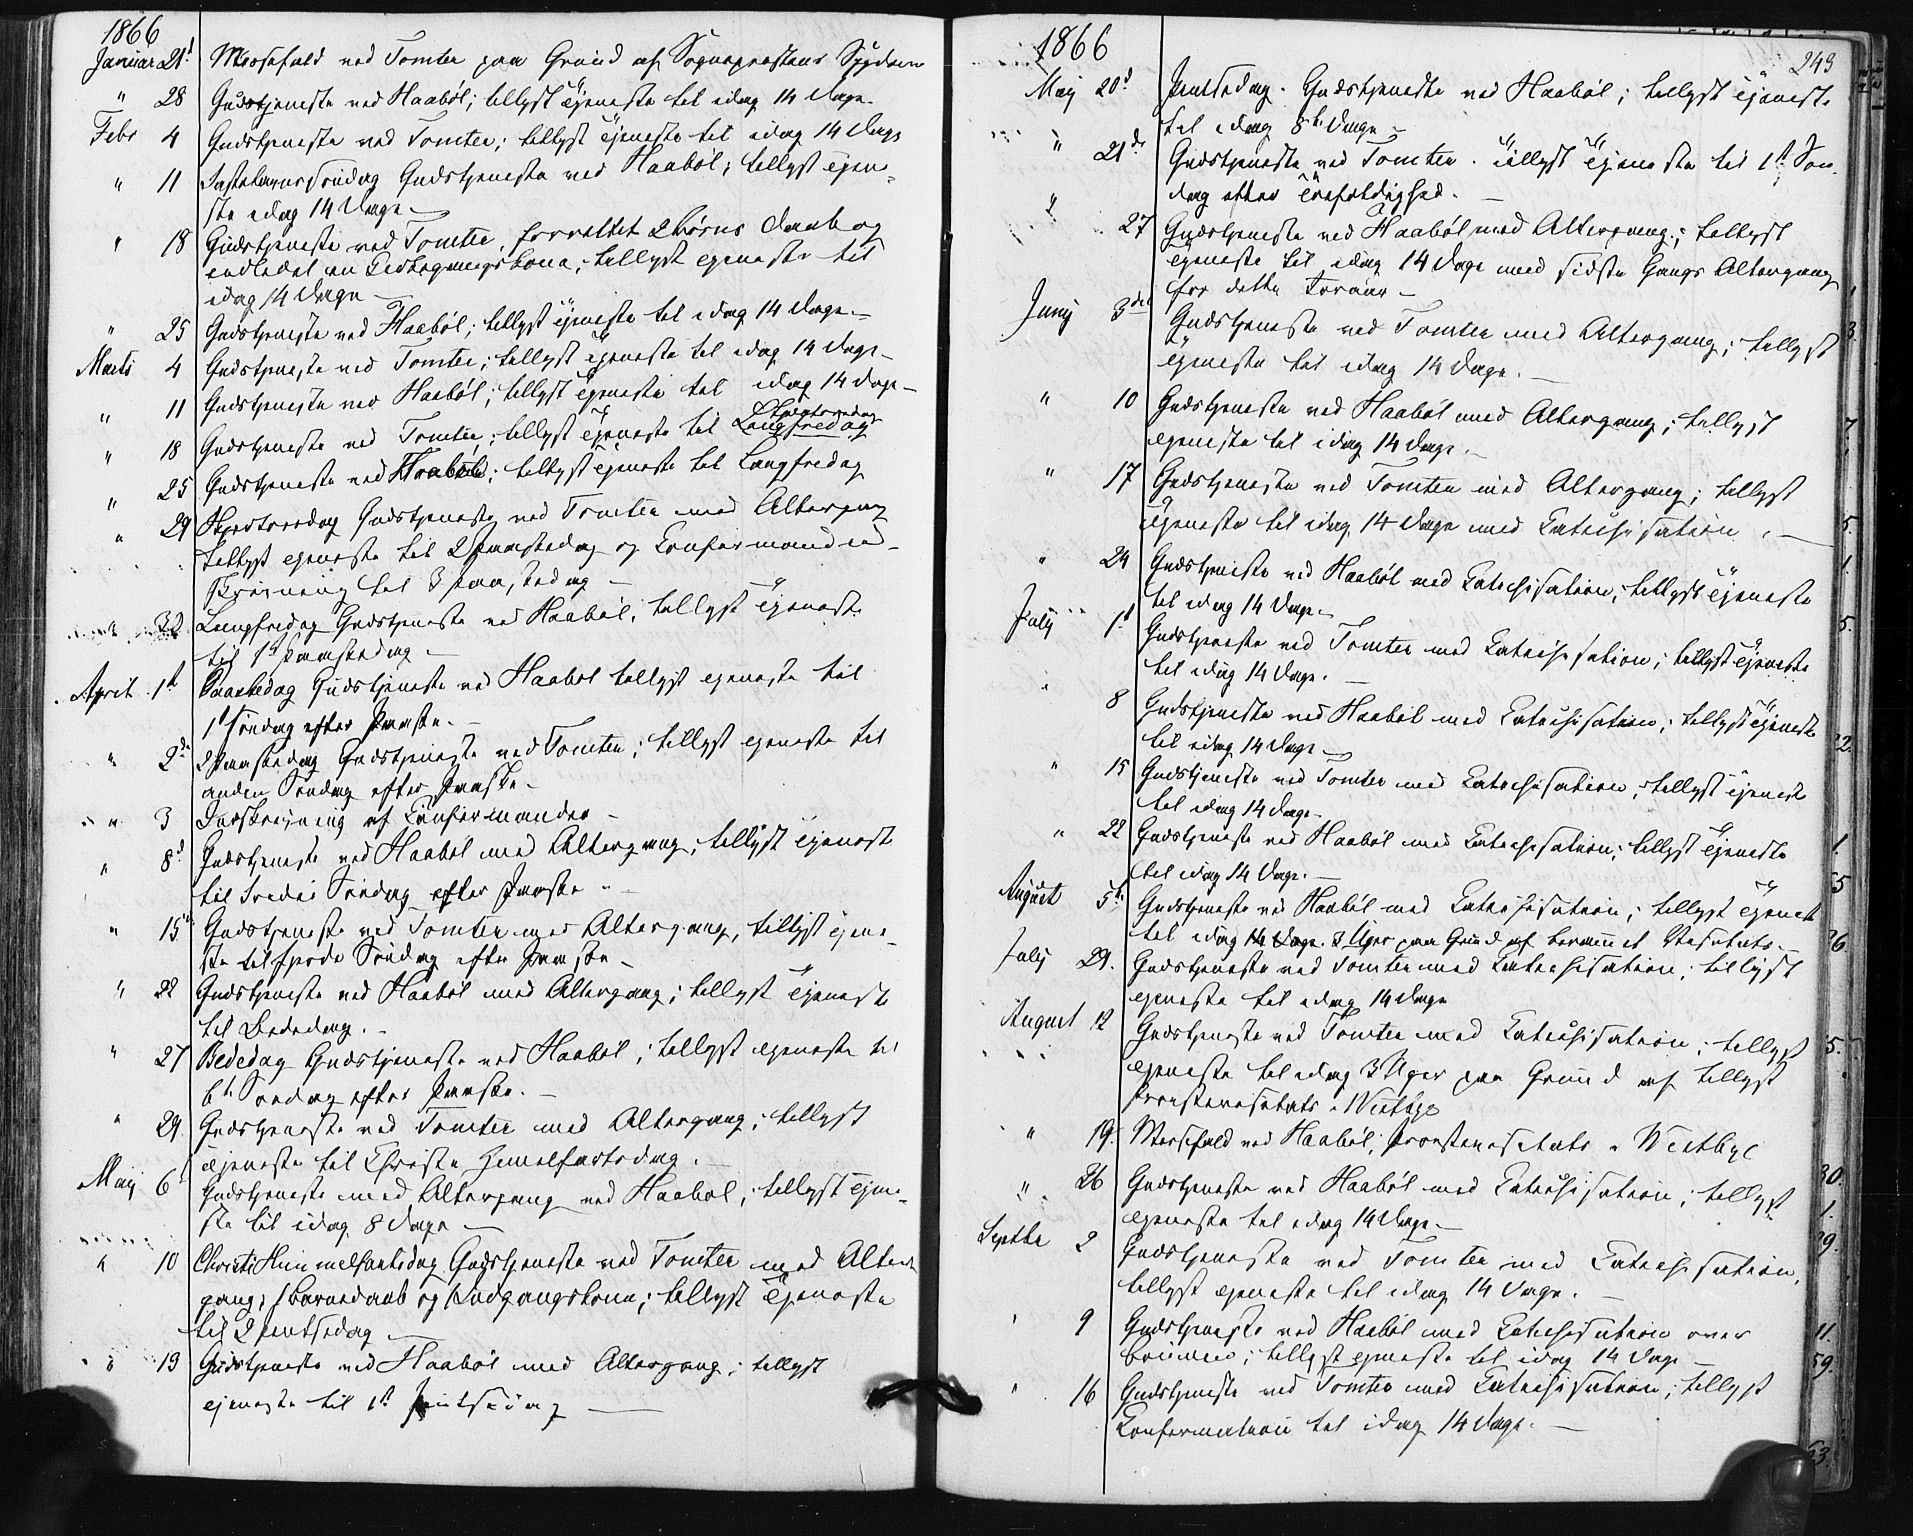 1866
Januar 21d Messefald ved Tomter paa Grund af Sognepræstens Sygdom
" 28 Gudstjeneste ved Haabøl; tillyst Tjeneste til idag 14 Dage.
Febr 4 Gudstjeneste ved Tomter; tillyst Tjeneste til idag 14 Dage
" 11 Fastelavnssøndag Gudstjeneste ved Haabøl; tillyst Tjene-
ste idag 14 Dage —
" 18 Gudstjeneste ved Tomter, forrettet 2 Børns Daab og
indledet en Kirkegangskone; tillyst Tjeneste til
idag 14 Dage —
" 25 Gudstjeneste ved Haabøl; tillyst Tjeneste til idag 14 Dage. —
Marts 4 Gudstjeneste ved Tomter; tillyst Tjeneste til idag 14 Dage —
" 11 Gudstjeneste ved Haabøl; tillyst Tjeneste til idag 14 Dage —
" 18 Gudstjeneste ved Tomter; tillyst Tjeneste til Skjærtorsdag Langfredag
" 25 Gudstjeneste ved Haabøl; tillyst Tjeneste til Langfredag
" 29 Skjærtorsdag Gudstjeneste ved Tomter med Altergang
tillyst Tjeneste til 2 Paaskedag og Confirmandind-
skrivning til 3 Paaskedag —
" 30 Langfredag Gudstjeneste ved Haabøl, tillyst Tjeneste
til 1st Paaskedag —
April 1st Paaskedag Gudstjeneste ved Haabøl tillyst Tjeneste til
1st Søndag efter Paaske. —
" 2de 2 Paaskedag Gudstjeneste ved Tomter; tillyst Tjeneste til
anden Søndag efter Paaske —
" 3 Indskrivning af Confirmander —
" 8d Gudstjeneste ved Haabøl med Altergang; tillyst Tjeneste
til tredie Søndag efter Paaske —
" 15d Gudstjeneste ved Tomter med Altergang, tillyst Tjene-
ste til fjerde Søndag efter Paaske —
" 22 Gudstjeneste ved Haabøl med Altergang; tillyst Tjeneste
til Bededag. —
" 27 Bededag Gudstjeneste ved Haabøl; tillyst Tjeneste til
6te Søndag efter Paaske. —
" 29 Gudstjeneste ved Tomter med Altergang; tillyst
Tjeneste til Christi Himmelfartsdag. —
May 6 Gudstjeneste med Altergang ved Haabøl; tillyst Tjene-
ste til idag 8 Dage —
" 10 Christi Himmelfartsdag Gudstjeneste ved Tomter med Alter-
gang, 1 Barnedaab og 1 Indgangskone; tillyst Tjeneste
til 2 Pintsedag —
" 13 Gudstjeneste ved Haabøl med Altergang; tillyst
Tjeneste til 1st Pintsedag —
243
1866
May 20d Pintsedag. Gudstjeneste ved Haabøl; tillyst Tjeneste
til idag 8te Dage —
" 21de Gudstjeneste ved Tomter. tillyst Tjeneste til 1st Søn-
dag efter Trefoldighed. —
" 27 Gudstjeneste ved Haabøl med Altergang; tillyst
Tjeneste til idag 14 Dage med sidste Gangs Altergang
for dette Foraar —
Juny 3die Gudstjeneste ved Tomter med Altergang; tillyst
Tjeneste til idag 14 Dage. —
" 10 Gudstjeneste ved Haabøl med Altergang; tillyst
Tjeneste til idag 14 Dage. —
" 17 Gudstjeneste ved Tomter med Altergang; tillyst
Tjeneste til idag 14 Dage med Catechisation. —
" 24 Gudstjeneste ved Haabøl med Catechisation; tillyst Tjeneste
til idag 14 Dage —
July 1st Gudstjeneste ved Tomter med Catechisation; tillyst Tjeneste
til idag 14 Dage. —
" 8 Gudstjeneste ved Haabøl med Catechisation; tillyst Tjeneste
til idag 14 Dage —
" 15 Gudstjeneste ved Tomter med Catechisation; tillyst Tjeneste
til idag 14 Dage —
" 22 Gudstjeneste ved Haabøl med Catechisation; tillyst Tjeneste
til idag 14 Dage. —
August 5te Gudstjeneste ved Haabøl med Catechisation; tillyst Tjeneste
til idag 14 Dage. 3 Uger paa Grund af berammet Visitats. —
July 29. Gudstjeneste ved Tomter med Catechisation; tillyst
Tjeneste til idag 14 Dage
August 12 Gudstjeneste ved Tomter med Catechisation; tillyst
Tjeneste til idag 3 Uger paa Grund af tillyst
Provstevisitats i Westbye
" 19. Messefald ved Haabøl; Provstevisitats i Westbye
" 26 Gudstjeneste ved Haabøl med Catechisation; tillyst
Tjeneste til idag 14 Dage —
Septbr 2 Gudstjeneste ved Tomter med Catechisation,
tillyst Tjeneste til idag 14 Dage. —
" 9 Gudstjeneste ved Haabøl med Catechisation over
; tillyst Tjeneste til idag 14 Dage —
" 16 Gudstjeneste ved Tomter med Catechisation; tillyst
Confirmation til idag 14 Dage. —